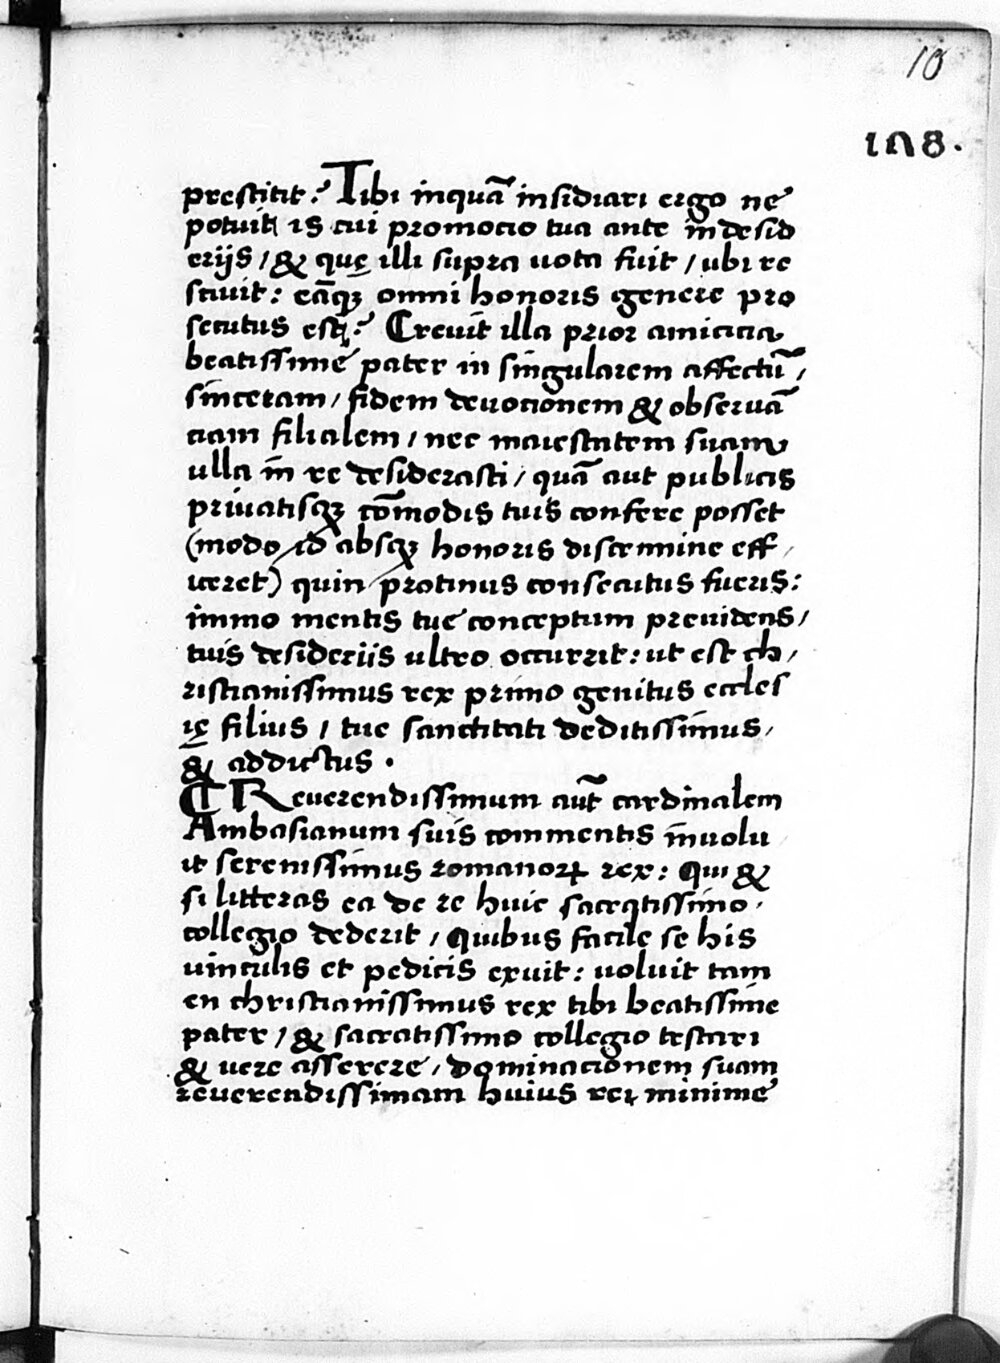 10
108.
prestitit? Tibi inquā insidiari ergo ne
potuit is cui promocio tua ante in desid
eriis / & quę illi supra uota fuit / ubi re
sciuit: eāqꝫ omni honoris genere pro
secutus est? Creuit illa prior amicicia
beatissime pater in singularem affectū /
sinceram / fidem deuocionem & obseruā
ciam filialem / nec maiestatem suam
ulla in re desiderasti / quā aut publicis
priuatisqꝫ cōmodis tuis conferre posset
(modo id absqꝫ honoris discrimine eff /
ueret) quin protinus consecutus fueris:
immo mentis tue conceptum preuidens /
tuis desideriis ultro occurrit: ut est ch /
ristianissimus rex primo genitus eccles
ię filius / tue sanctitati deditissimus /
& addictus .
¶ Reuerendissimum aūt cardinalem
Ambasianum suis commentis inuolu
it serenissimus romanoꝝ rex: Qui &
si litteras ea de re huic sacratissimo .
collegio dederit / Quibus facile se his
uinculis et pedicis exuit: uoluit tam
en christianissimus rex tibi beatissime
pater / & sacratissimo collegio testari
& uere asserere / dominacionem suam
reuerendissimam huius rei minime